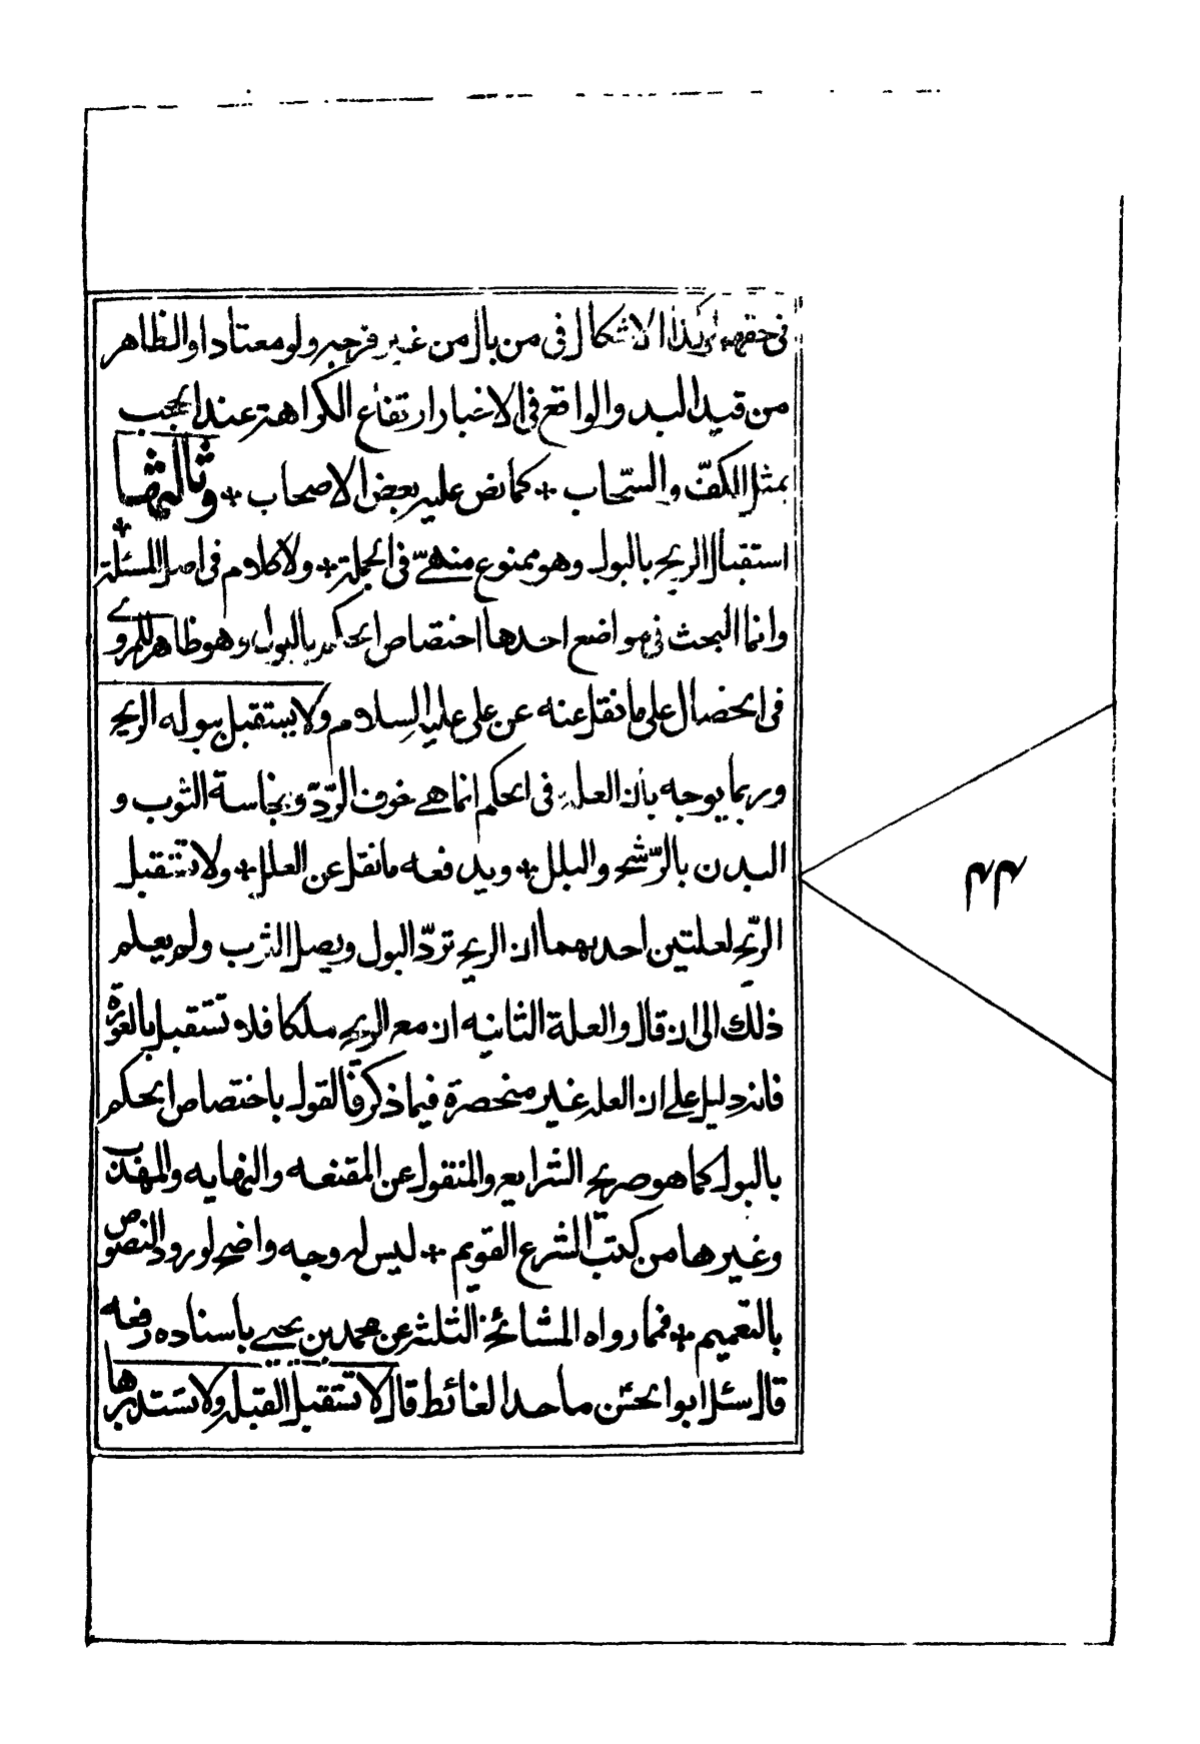 في حقه وكذا الاشكال في من بال من غير فرجه ولو معتادا والظاهر
من قيد البدو والواقع في الاخبار ارتفاع الكراهة عند الحجب
بمثل الكفّ والسّحاب * كما نص عليه بعض الاصحاب * وثالثها
استقبال الريح بالبول وهو ممنوع منهيّ في الجملة * ولا كلام في اصل المسئلة *
وانما البحث في مواضع احدها اختصاص الحكم بالبول وهو ظاهر المروي
في الخصال على ما نقل عنه عن علي عليه السلام ولا يستقبل ببوله الريح
وربما يوجه بان العلة في الحكم انما هي خوف الردّ ونجاسة الثوب و
البدن بالرّشح والبلل * ويدفعه ما نقل عن العلل * ولا تستقبل
الريح لعلتين احديهما ان الريح تردّ البول ويصل الثوب ولم يعلم
ذلك الى ان قال والعلة الثانيه ان مع الريح ملكا فلا تستقبل بالعورة
فانه دليل على ان العله غير منحصرة فيما ذكر فالقول باختصاص الحكم
بالبول كما هو صريح الشرايع والمنقول عن المقنعه والنهايه والمهذب
وغيرها من كتب الشرع القويم * ليس له وجه واضح لورود النصوص
بالتعميم * فمما رواه المشائخ الثلثة عن محمد بن يحيى باسناده رفعه
قال سئل ابو الحسن ما حد الغائط قال لا تستقبل القبلة ولا تستدبرها